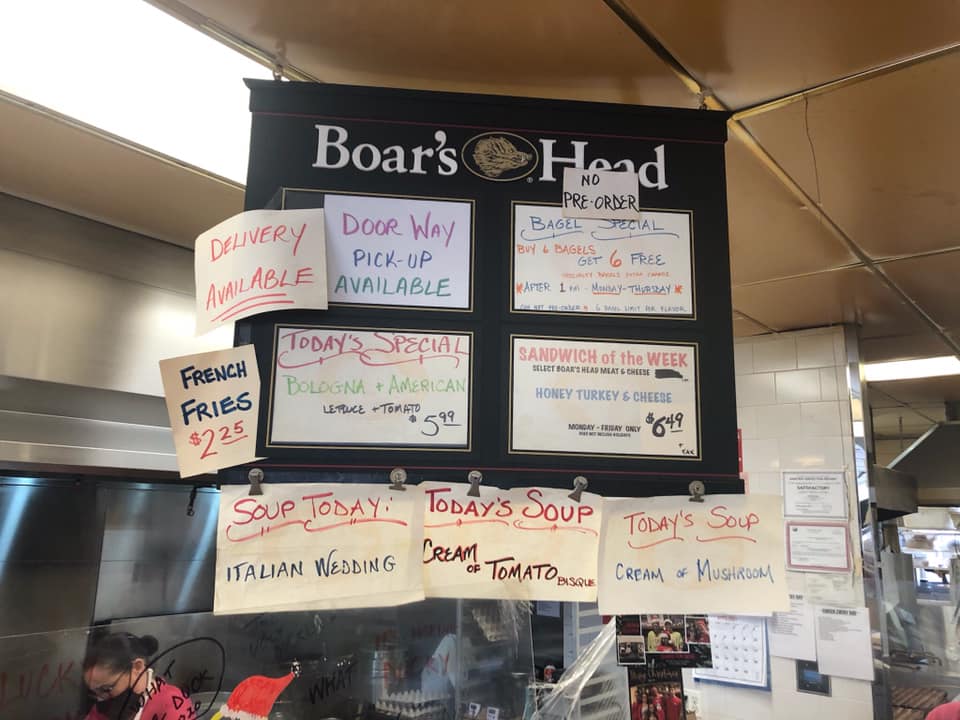 Boar's Head
NO
PRE-ORDER
DELIVERY
AVAILABLE
DOOR WAY
PICK-UP
AVAILABLE
BAGEL SPECIAL
BUY 6 BAGELS
GET 6 FREE
SPECIALTY BAGELS EXTRA CHARGE
*AFTER 1 PM - MONDAY-THURSDAY *
CAN NOT PRE-ORDER * 6 BAGEL LIMIT PER FLAVOR
FRENCH
FRIES
$2.25
TODAY'S SPECIAL
BOLOGNA + AMERICAN
LETTUCE + TOMATO
$5.99
SANDWICH of the WEEK
SELECT BOAR'S HEAD MEAT & CHEESE
HONEY TURKEY & CHEESE
$6.49
MONDAY - FRIDAY ONLY
+ TAX
SOUP TODAY:
ITALIAN WEDDING
TODAY'S SOUP
CREAM
OF TOMATO BISQUE
TODAY'S SOUP
CREAM OF MUSHROOM
SATISFACTORY
LUCK
WHAT
DUCK
2020
WHAT